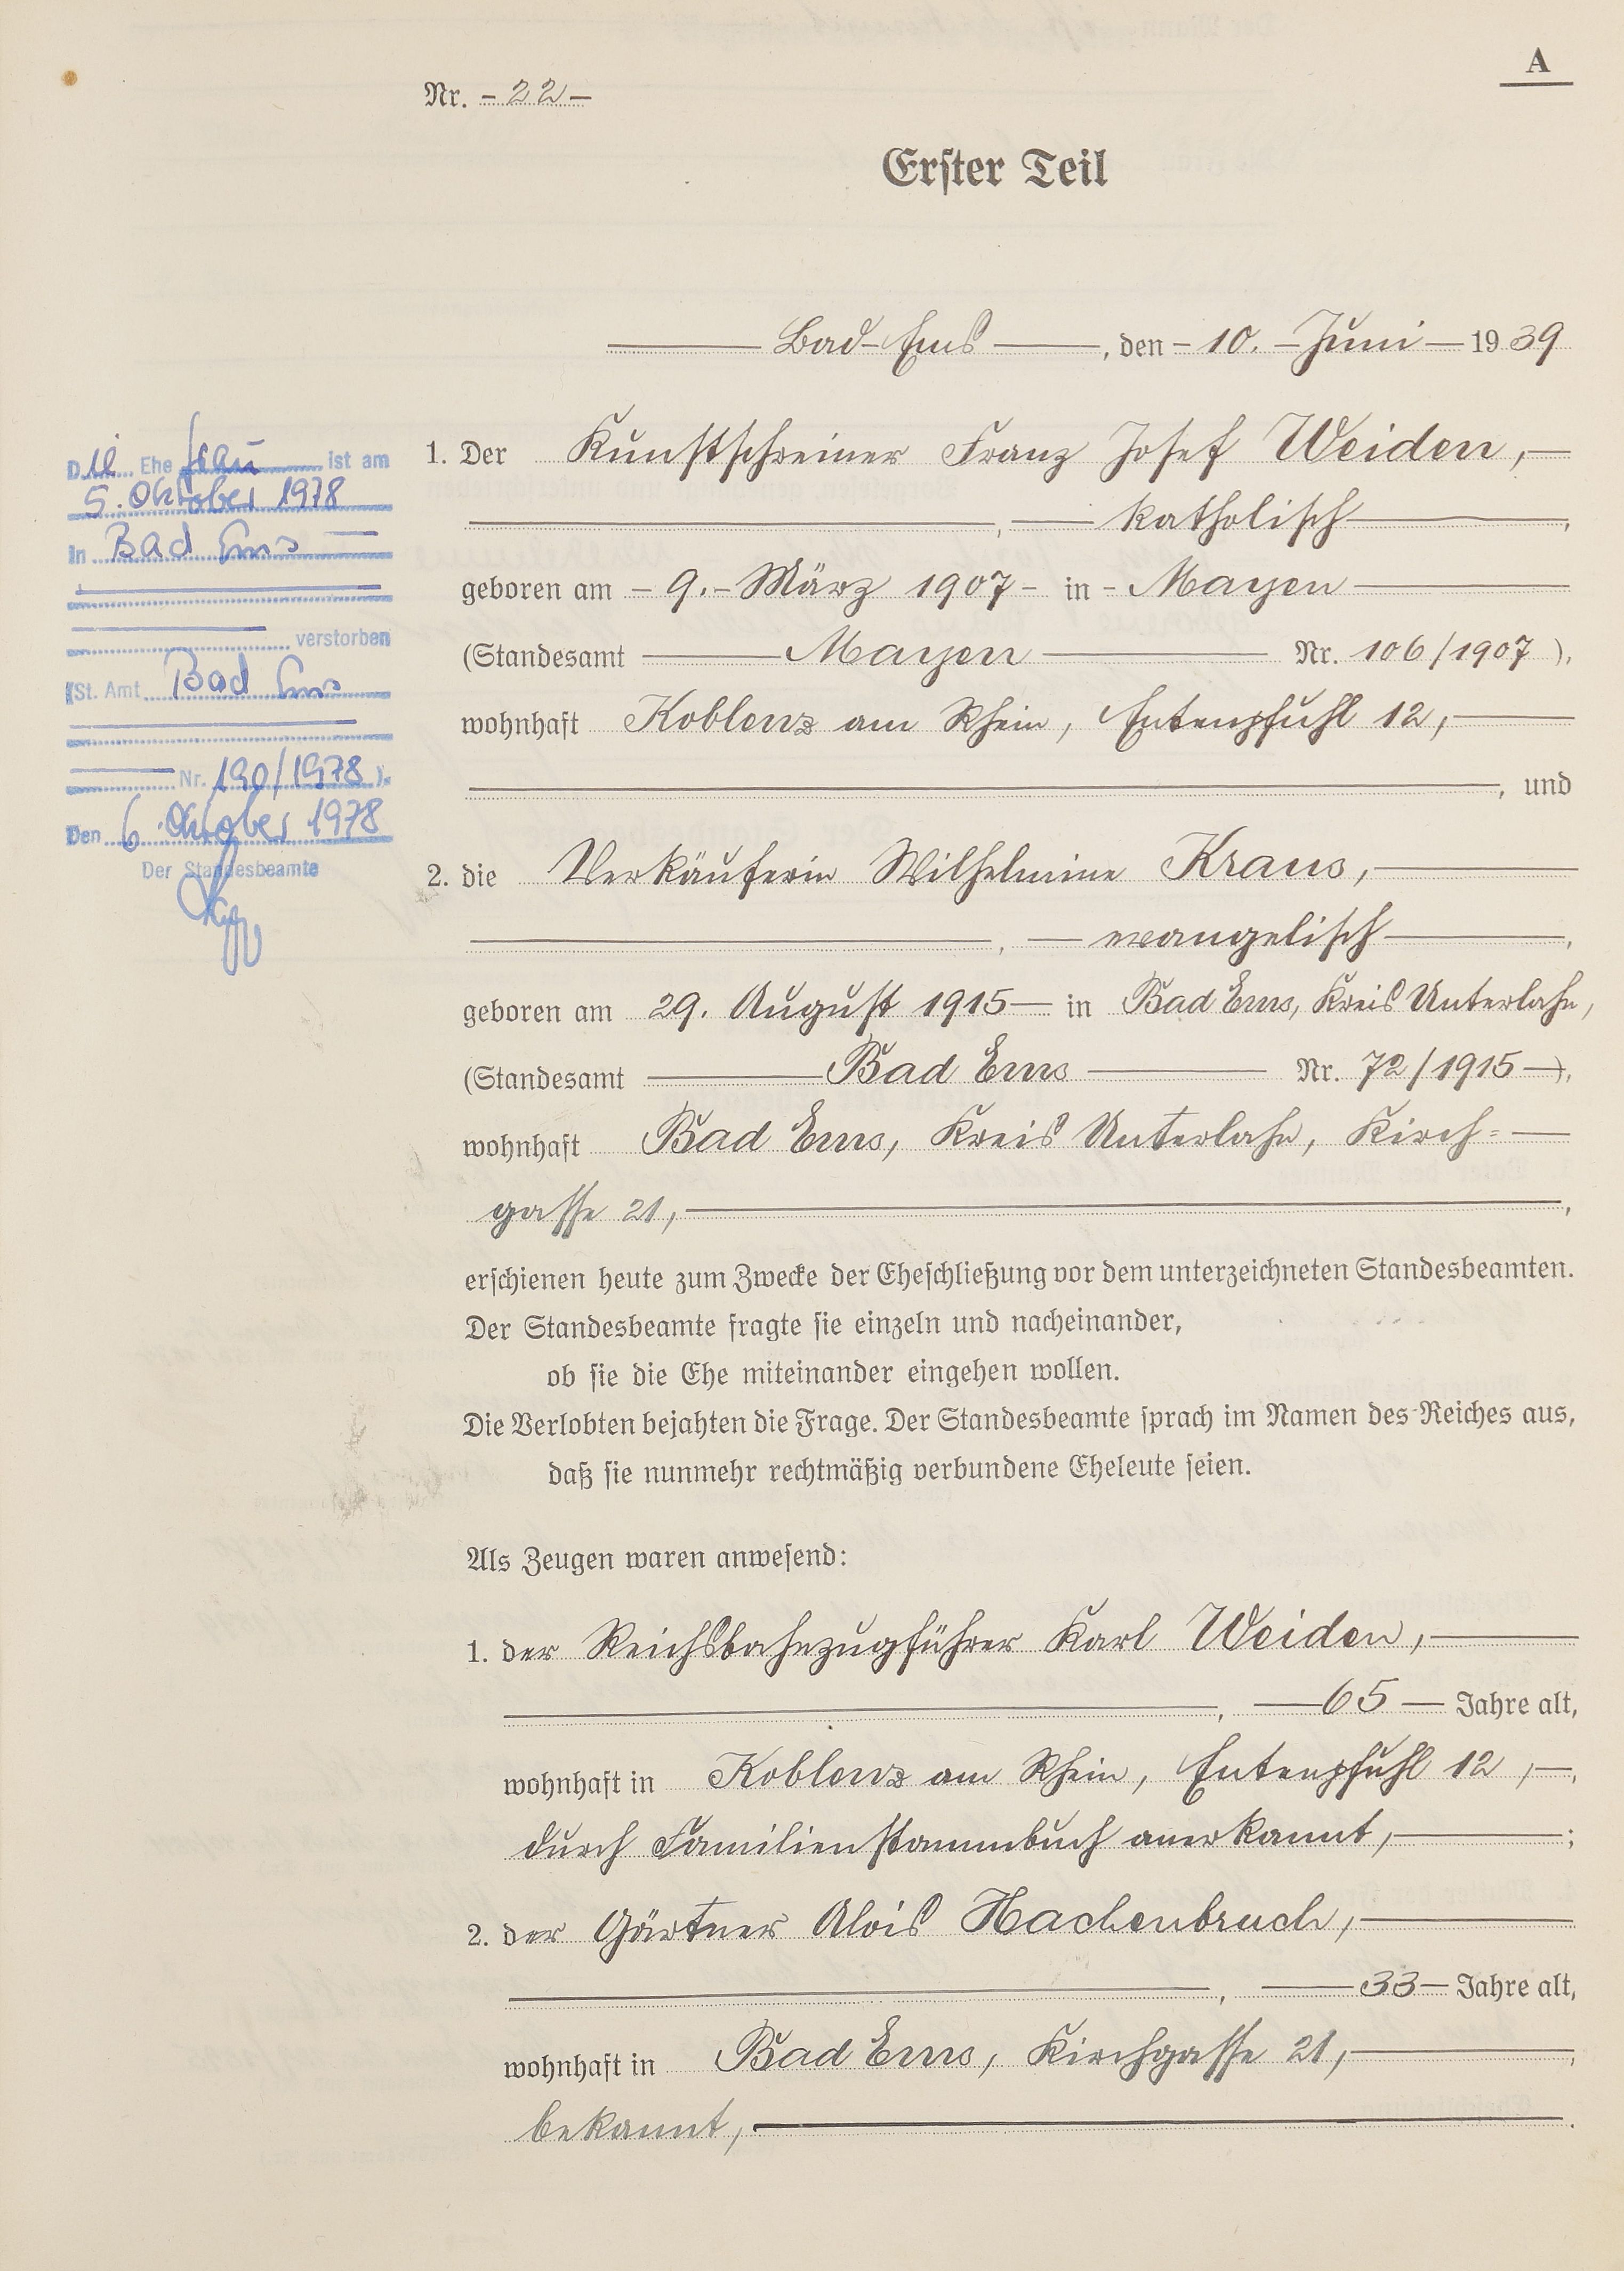 A
Nr. - 22 -
Erster Teil
Bad Ems, den - 10. - Juni - 1939
1. Der Kunstschreiner Franz Josef Weiden,
, katholisch,
geboren am - 9. - März 1907 - in - Mayen
(Standesamt Mayen Nr. 106/1907),
wohnhaft Koblenz am Rhein, Entenpfuhl 12,
, und
2. die Verkäuferin Wilhelmine Kraus,
, evangelisch,
geboren am 29. August 1915 in Bad Ems, Kreis Unterlahn,
(Standesamt Bad Ems Nr. 72/1915),
wohnhaft Bad Ems, Kreis Unterlahn, Kirch=
gasse 21,
erschienen heute zum Zwecke der Eheschließung vor dem unterzeichneten Standesbeamten.
Der Standesbeamte fragte sie einzeln und nacheinander,
ob sie die Ehe miteinander eingehen wollen.
Die Verlobten bejahten die Frage. Der Standesbeamte sprach im Namen des Reiches aus,
daß sie nunmehr rechtmäßig verbundene Eheleute seien.
Als Zeugen waren anwesend:
1. der Reichsbahnzugführer Karl Weiden,
, 65 Jahre alt,
wohnhaft in Koblenz am Rhein, Entenpfuhl 12,
durch Familienstammbuch anerkannt,;
2. der Gärtner Alois Hachenbruch,
, 33 Jahre alt,
wohnhaft in Bad Ems, Kirchgasse 21,
bekannt,.
Die Ehefrau ist am
5. Oktober 1978
in Bad Ems
verstorben
(St. Amt Bad Ems
Nr. 190/1978).
Den 6. Oktober 1978
Der Standesbeamte